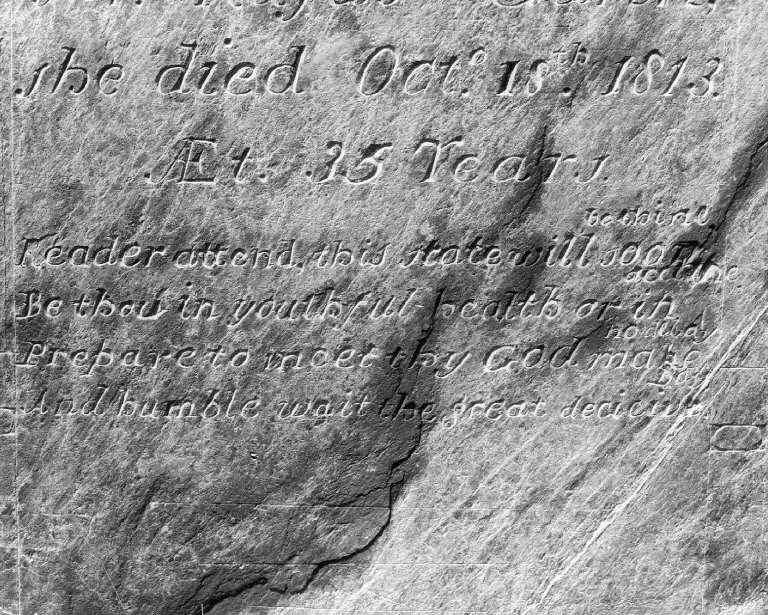 she died Octo. 18th. 1813.
Æt. 35 Years.
be thine,
Reader attend, this state will soon
decline.
Be thou in youthful health or in
no delay
Prepare to meet thy God make
Day.
And humble wait the great decicive